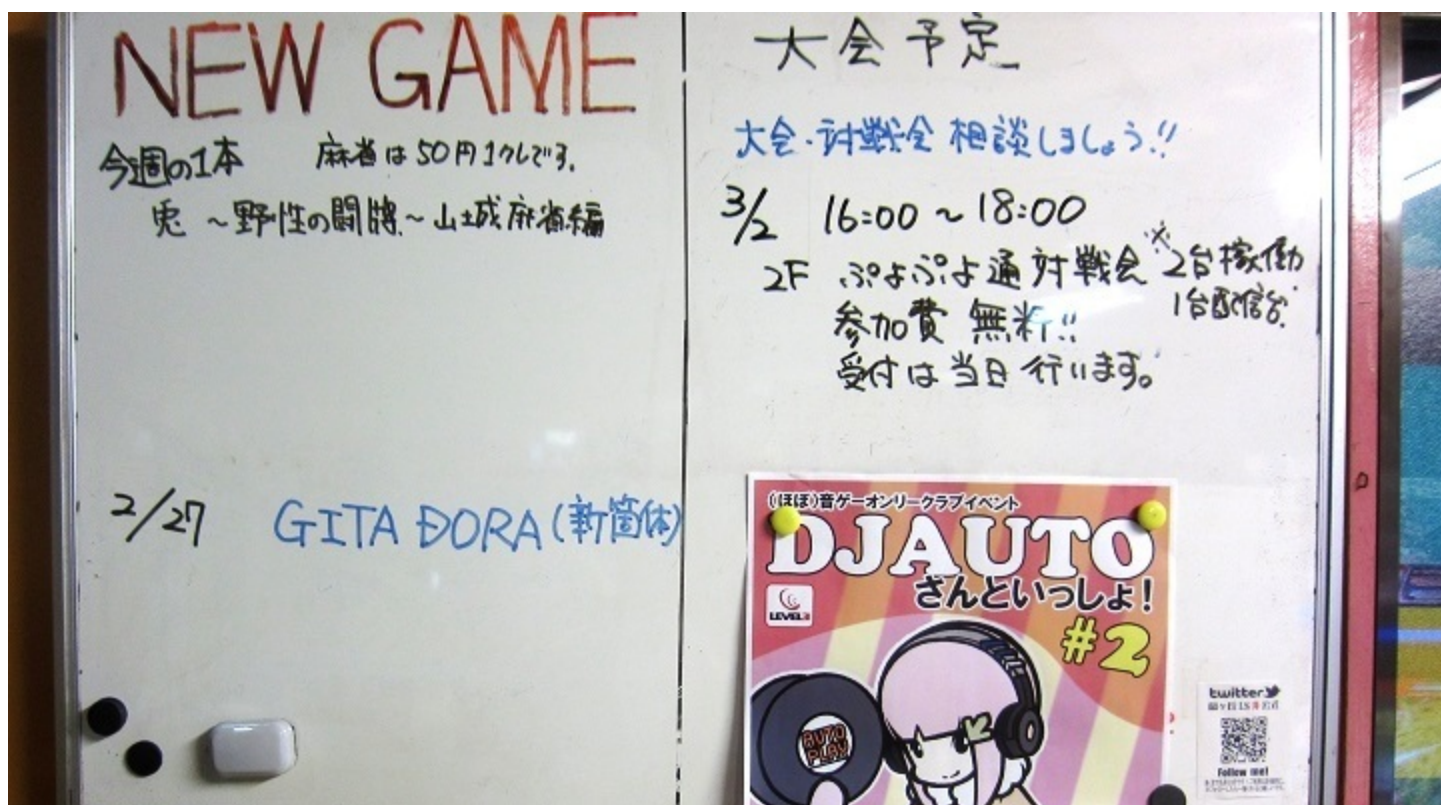 NEW GAME
今週の1本 麻雀は50円1クレです.
兎 ～野性の闘牌～山城麻雀編
2/27 GITADORA(新筐体)
大会予定
大会・対戦会 相談しましょう!!
3/2 16:00～18:00
2F ぷよぷよ通対戦会 ※2台稼働
1台配信台.
参加費 無料!!
受付は当日行います。
(ほぼ)音ゲーオンリークラブイベント
DJAUTO
さんといっしょ!
LEVEL
#2
AUTO
PLAY
twitter
Follow me!